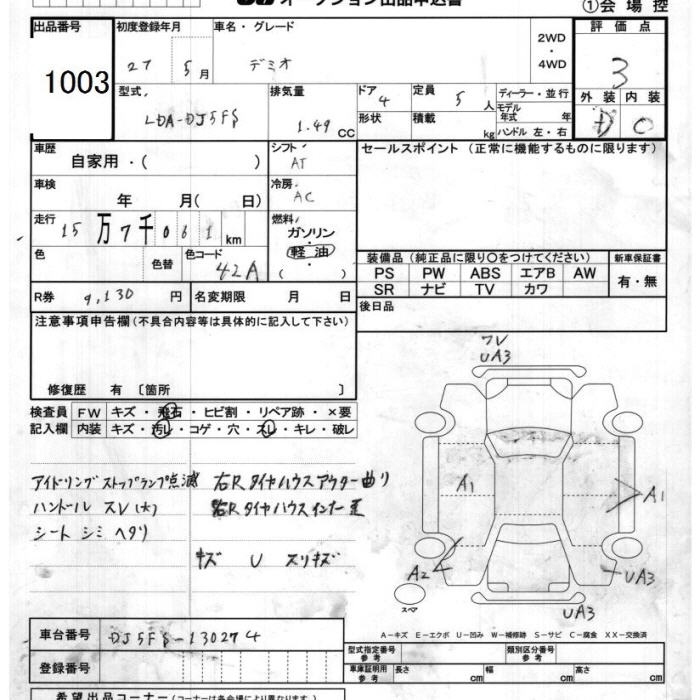 ①会場控
出品番号
1003
初度登録年月
27 5月
車名・グレード
デミオ
2WD
・
4WD
評価点
3
外装 内装
D C
型式
LDA-DJ5FS
排気量
1.49 CC
ドア
4
定員
5 人
形状
積載
kg
ディーラー・並行
モデル年式 年
ハンドル 左・右
車歴
自家用・( )
シフト
AT
セールスポイント (正常に機能するものに限ります)
車検
年 月( 日)
冷房
AC
走行
15万7千061km
燃料
ガソリン
・
軽油
・
( )
色
色替
色コード
42A
装備品 (純正品に限り〇をつけてください)
PS PW ABS エアB AW
SR ナビ TV カワ
新車保証書
有・無
R券 9,130 円
名変期限 月 日
後日品
注意事項申告欄(不具合内容等は具体的に記入して下さい)
修復歴 有 〔箇所 〕
検査員 FW キズ・飛石・ヒビ割・リペア跡・×要
記入欄 内装 キズ・汚レ・コゲ・穴・スレ・キレ・破レ
アイドリングストップランプ点滅
ハンドル スレ(大)
シート シミ ヘタリ
右Rタイヤハウスアウター曲り
右Rタイヤハウスインナー歪
キズ U スリキズ
ワレ
UA3
A1
A1
A2
UA3
UA3
スペア
A−キズ E−エクボ U−凹み W−補修跡 S−サビ C−腐食 XX−交換済
車台番号 DJ5FS-130274
登録番号
型式指定番号 参考
類別区分番号 参考
車庫証明用 参考
長さ cm
幅 cm
高さ cm
希望出品コーナー